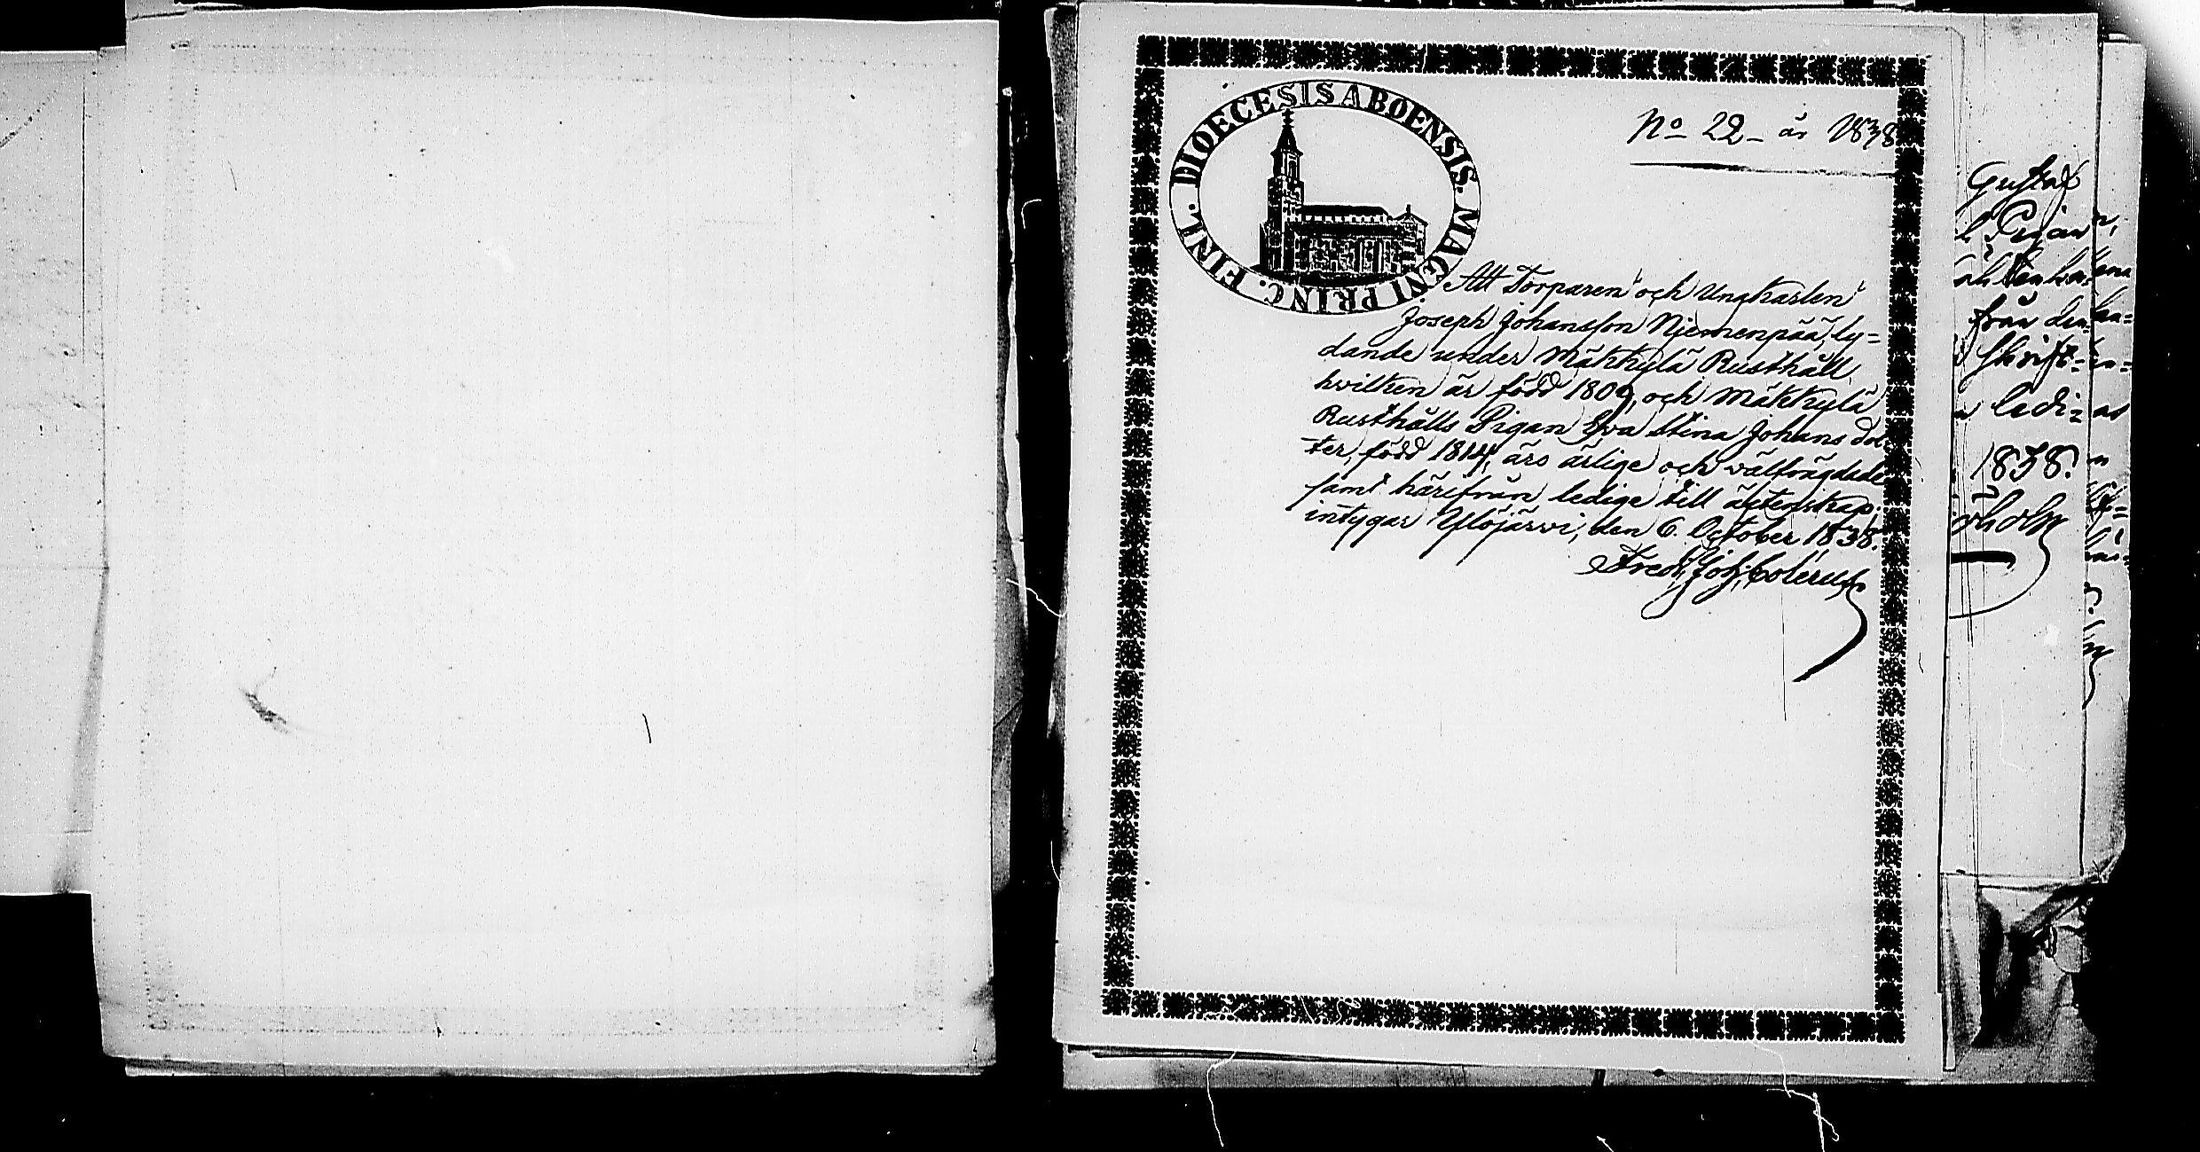 DIOECESIS ABOENSIS. MAGNI PRINC. FINL.
No 22 - år 1838
Att Torparen och Ungkarlen
Joseph Johansson Njemenpää, ly=
dande under Mäkkylä Rusthåll,
hvilken är född 1809, och Mäkkylä
Rusthålls Pigan Eva Stina Johans Dot=
ter, född 1814, äro ärlige och välfrägdade
samt härifrån ledige till äctenskap.
intygar Ylöjärvi, den 6. October 1838.
Fredr. Joh. Colerus
Gustaf
från den
skrift=
ledi=
1838.